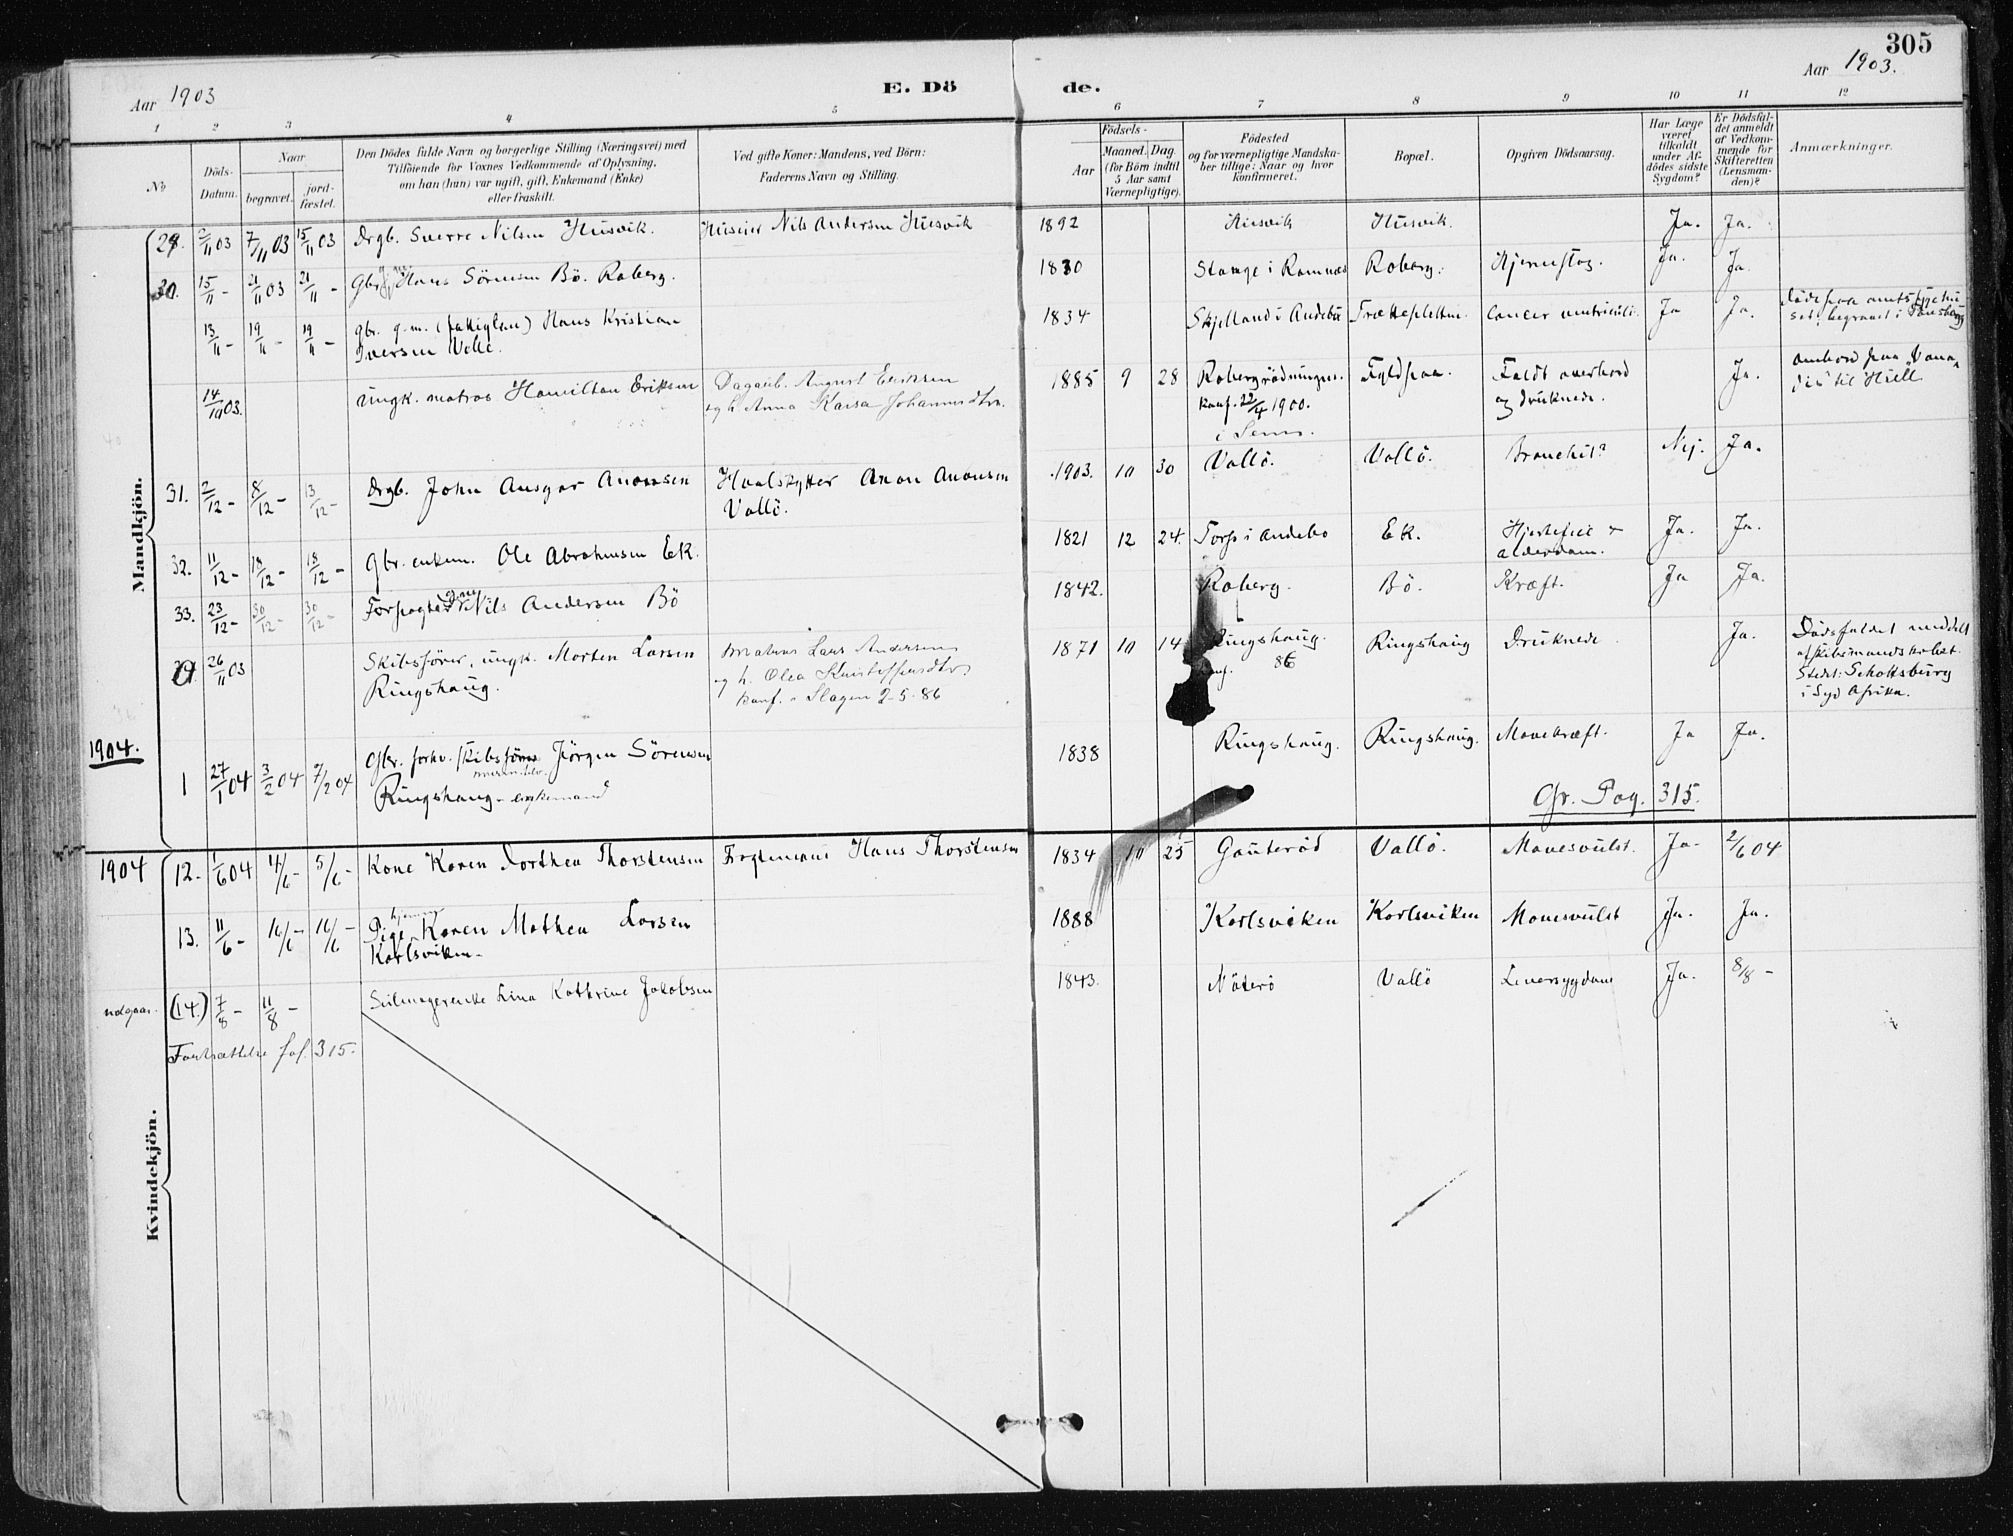 305
Aar 1903
E. Döde.
Aar 1903.
1 2 3 4 5 6 7 8 9 10 11 12
No
Döds-Datum.
Naar
begravet.
jord-fæstet.
Den Dödes fulde Navn og borgerlige Stilling (Næringsvei) med
Tilföiende for Voxnes Vedkommende af Oplysning,
om han (hun) var ugift, gift, Enkemand (Enke)
eller fraskilt.
Ved gifte Koner: Mandens, ved Börn:
Faderens Navn og Stilling.
Födsels-
Aar
Maaned. Dag
(for Börn indtil
5 Aar samt
Værnepligtige).
Födested
og for værnepligtige Mandska-
ber tillige: Naar og hvor
konfirmeret.
Bopæl.
Opgiven Dödsaarsag.
Har Læge
været
tilkaldt
under Af-
dödes sidste
Sygdom?
Er Dödsfal-
det anmeldt
af Vedkom-
mende for
Skifteretten
(Lensman-
den)?
Anmærkninger.
Mandkjön.
29. 2/11 03 7/11 03 15/11 03 Drgb. Sverre Nilsen Husvik. Huseier Nils Andersen Husvik 1892 Husvik Husvik. Ja. Ja.
30. 15/11 - 21/11 03 21/11 - Gbr. Hans Sörensen Bö. Roberg. 1830 Stange i Ramnæs Roberg. Hjerneslag. Ja. Ja.
13/11 - 19/11 - 19/11 - gbr. g.m. (fattiglem) Hans Kristian
Iversen Valle. 1834 Skjelland i Andebu Træklepletten. Cancer ventriculi. Ja Ja. Döde paa amtssygehu
set, begravet i Tønsberg
14/10 03. Ungk. matros Hamilton Eriksen Dagarb. August Eriksen
og h. Anna Kaisa Johannesdtr. 1885 9 28 Robergrödningen.
konf. 22/4 1900.
i Sem. Fyldpaa. Faldt overbord
og druknede. Ja. ombord paa "Vana
dis" til Hull
31. 2/12 - 8/12 - 13/12 - Drgb. John Ansgar Anonsen Hvalskytter Anon Anonsen
Vallö. 1903. 10 30 Vallö. Vallö. Bronchit? Nej. Ja.
32. 11/12 - 18/12 - 18/12 - Gbr. enkem. Ole Abrahamsen Ek. 1821 12 24. Torp i Andebo Ek. Hjertefeil &
alderdom. Ja. Ja.
33. 23/12 - 30/12 - 30/12 - Forpagter Nils Andersen Bö 1842. Roberg. Bö. Kræft. Ja Ja.
26/11 03 Skibsförer, ungk. Morten Larsen
Ringshaug. Matros Lars Andersen
og h. Olea Kristoffersdtr.
konf. i Slagen 2-5-86 1871 10 14 Ringshaug.
konf. 86 Ringshaug Druknede. Ja. Dödsfaldet meddelt
af skibsmandskabet.
Sted: Schottsburg
i Syd Afrika.
1904.
1 27/1 04 3/2 04 7/2 04 Gbr. forhv. skibsförer Jörgen Sörensen
Ringshaug - enkemand 1838 Ringshaug. Ringshaug. Mavekræft. Ja Ja.
Cfr. Pag. 315.
Kvindekjön.
1904 12. 1/6 04 4/6 - 5/6 - Kone Karen Dorthea Thorstensen Fragtemand Hans Thorstensen 1834 10 25 Gauteröd Vallö. Mavesvulst. Ja- 2/6 04
13. 11/6 - 16/6 - 16/6 - Pige hjemmev. Karen Mathea Larsen
Karlsviken - 1888 Karlsviken Karlsviken Mavesvulst Ja. Ja.
udgaar. (14.) 7/8 - 11/8 - Seilmagerenke Lina Kathrine Jakobsen 1843. Nöterö Vallö Leversygdom Ja. 8/8 -
Fortsættelse fol. 315.